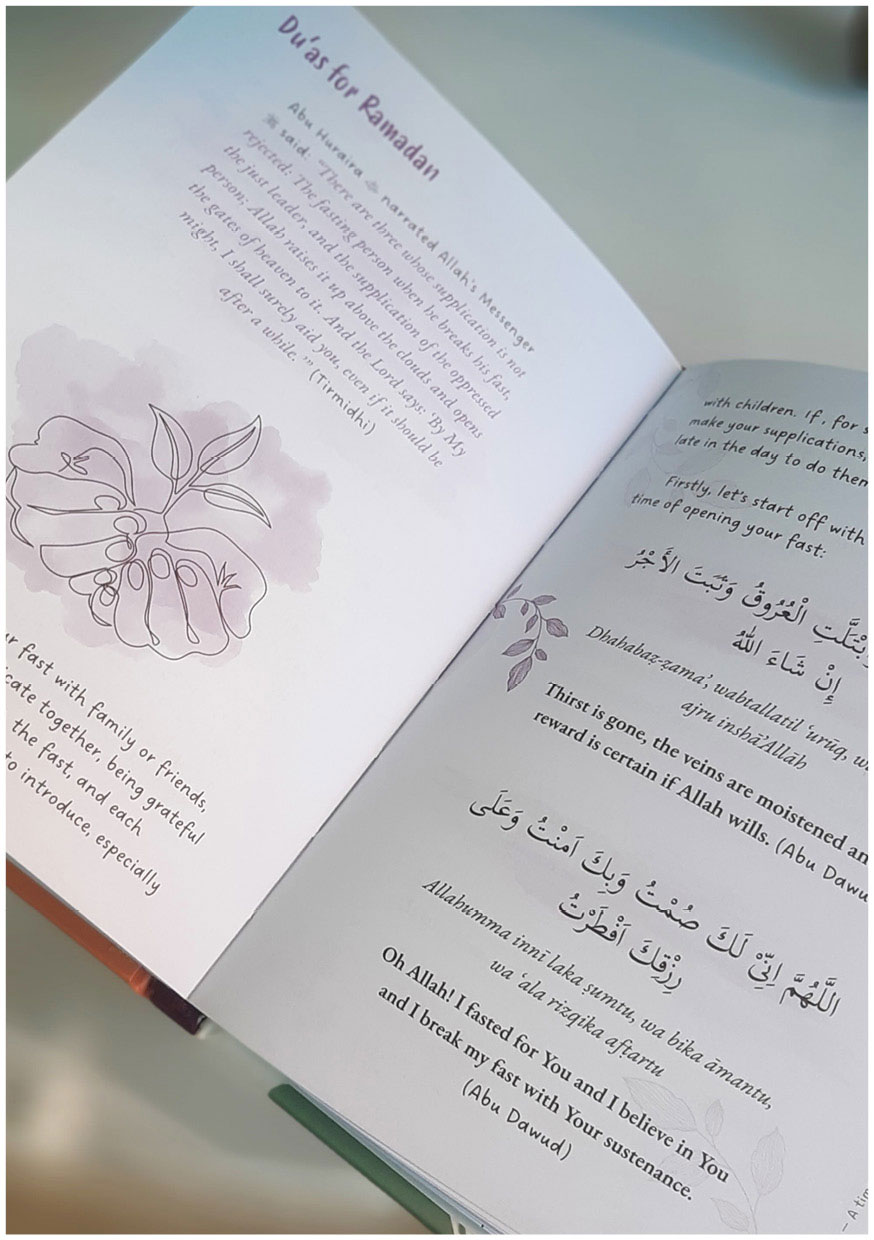 Du'as for Ramadan
Abu Huraira narrated Allah's Messenger
ﷺ said: "There are three whose supplication is not
rejected: The fasting person when he breaks his fast,
the just leader, and the supplication of the oppressed
person; Allah raises it up above the clouds and opens
the gates of heaven to it. And the Lord says: 'By My
might, I shall surely aid you, even if it should be
after a while.'" (Tirmidhi)
fast with family or friends,
together, being grateful
the fast, and each
to introduce, especially
with children. If, for
make your supplications,
late in the day to do
Firstly, let's start off with
time of opening your fast:
الْعُرُوقُ وَثَبَتَ الْأَجْرُ
إِنْ شَاءَ اللّٰهُ
Dhahabaẓ-ẓama', wabtallatil 'urūq,
ajru inshā'Allāh
Thirst is gone, the veins are moistened
reward is certain if Allah wills. (Abu
اللَّهُمَّ اِنِّيْ لَكَ صُمْتُ وَبِكَ اٰمَنْتُ وَعَلَى
رِزْقِكَ اَفْطَرْتُ
Allahumma innī laka ṣumtu, wa bika āmantu,
wa 'ala rizqika afṭartu
Oh Allah! I fasted for You and I believe in You
and I break my fast with Your sustenance.
(Abu Dawud)